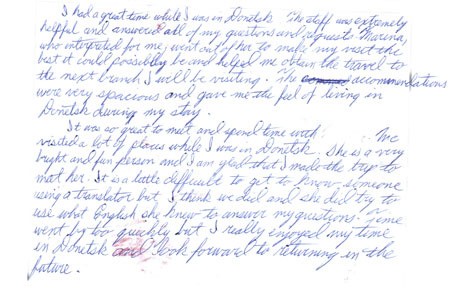 I had a great time while I was in Donetsk The staff was extremely
helpful and answered all of my questions and requests Marina,
who interpreted for me, went out of her to make my visit the
best it could possibly be and helped me obtain the travel to
the next branch I will be visiting. The accommendations
were very spacious and gave me the feel of living in
Donetsk during my stay.
It was so great to met and spend time with We
visited a lot of places while I was in Donetsk She is a very
bright and fun person and I am glad that I made the trip to
met her. It is a little difficult to get to know someone
using a translator but I think we did and she did try to
use what English she knew to answer my questions. Time
went by too quickly but I really enjoyed my time
in Donetsk and look forward to returning in the
future.